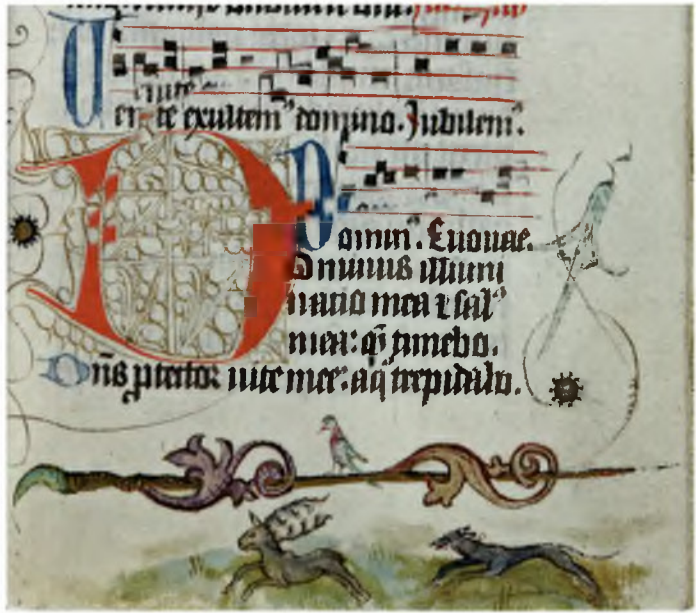 Uenite exultem' domino. Jubilem'.
Domin'. Euouae.
Dominus illumi
natio mea ⁊ sal'
mea: q̄ timebo.
Dn̄s ptector uite mee: a q̄ trepidabo.